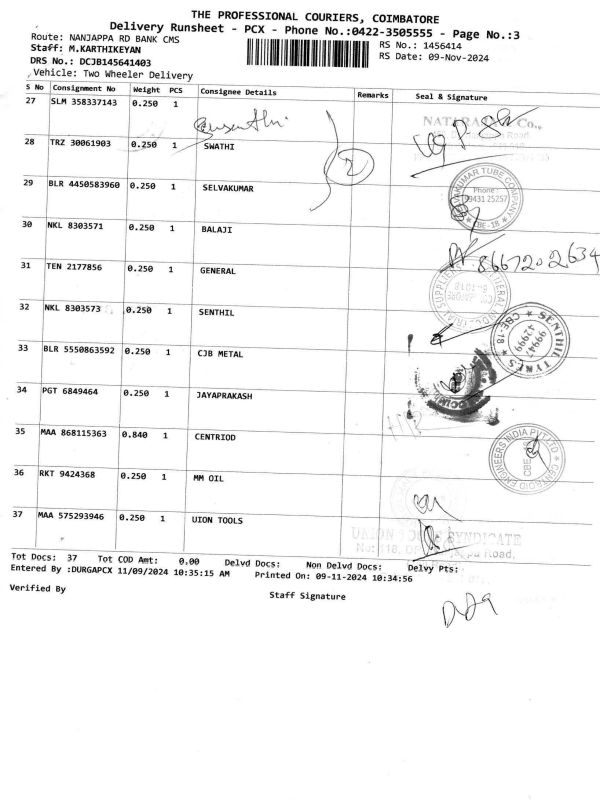 THE PROFESSIONAL COURIERS, COIMBATORE
Delivery Runsheet - PCX - Phone No.:0422-3505555 - Page No.:3
Route: NANJAPPA RD BANK CMS
RS No.: 1456414
Staff: M.KARTHIKEYAN
RS Date: 09-Nov-2024
DRS No.: DCJB145641403
Vehicle: Two Wheeler Delivery
S No Consignment No Weight PCS Consignee Details Remarks Seal & Signature
27 SLM 358337143 0.250 1
28 TRZ 30061903 0.250 1 SWATHI
2
29 BLR 4450583960 0.250 1 SELVAKUMAR
SELVAKUMAR TUBE COMPANY
Phone:
99431 25257
CBE-18
30 NKL 8303571 0.250 1 BALAJI
8667202634
31 TEN 2177856 0.250 1 GENERAL
32 NKL 8303573 0.250 1 SENTHIL
SENTHIL TYRES
99947
42999
CBE-18
33 BLR 5550863592 0.250 1 CJB METAL
34 PGT 6849464 0.250 1 JAYAPRAKASH
35 MAA 868115363 0.840 1 CENTRIOD
CENTROID ENGINEERS INDIA PVT LTD
36 RKT 9424368 0.250 1 MM OIL
37 MAA 575293946 0.250 1 UION TOOLS
UNION TOOLS SYNDICATE
Tot Docs: 37 Tot COD Amt: 0.00 Delvd Docs: Non Delvd Docs: Delvy Pts:
Entered By :DURGAPCX 11/09/2024 10:35:15 AM Printed On: 09-11-2024 10:34:56
Verified By
Staff Signature